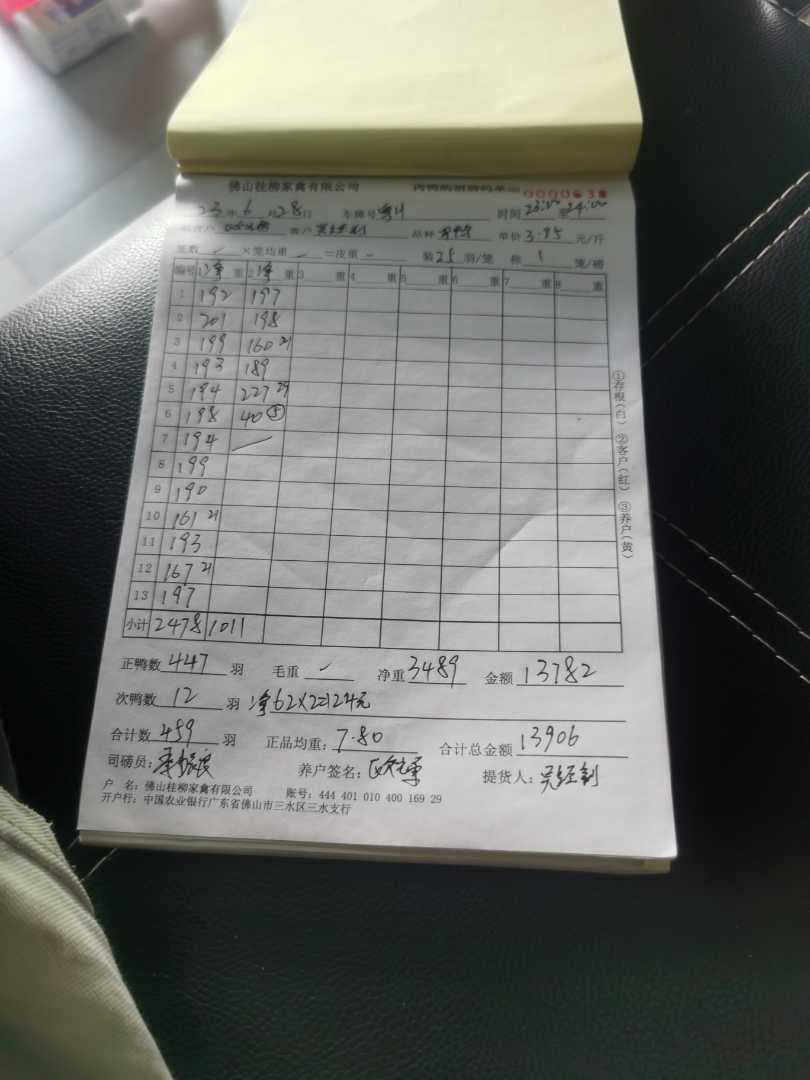 佛山桂柳家禽有限公司 0000638
23年6月28日 车牌号 时间23:00至24:00
客户 品种 单价3.95元/斤
笼数 ×笼均重 =皮重 装25羽/笼 称1笼/磅
编号 1净重 2净重 3重 4重 5重 6重 7重 8重
1 192 197
2 201 198
3 199 160 21
4 193 189
5 194 227 29
6 198 40 ⑤
7 194
8 199
9 190
10 161 21
11 193
12 167 21
13 197
小计 2478 1011
正鸭数447羽 毛重 净重3489 金额13782
次鸭数12羽 净62×2=124元
合计数459羽 正品均重:7.80 合计总金额13906
司磅员: 养户签名: 提货人:
户 名:佛山桂柳家禽有限公司 账号:444 401 010 400 169 29
开户行:中国农业银行广东省佛山市三水区三水支行
①存根(白) ②客户(红) ③养户(黄)